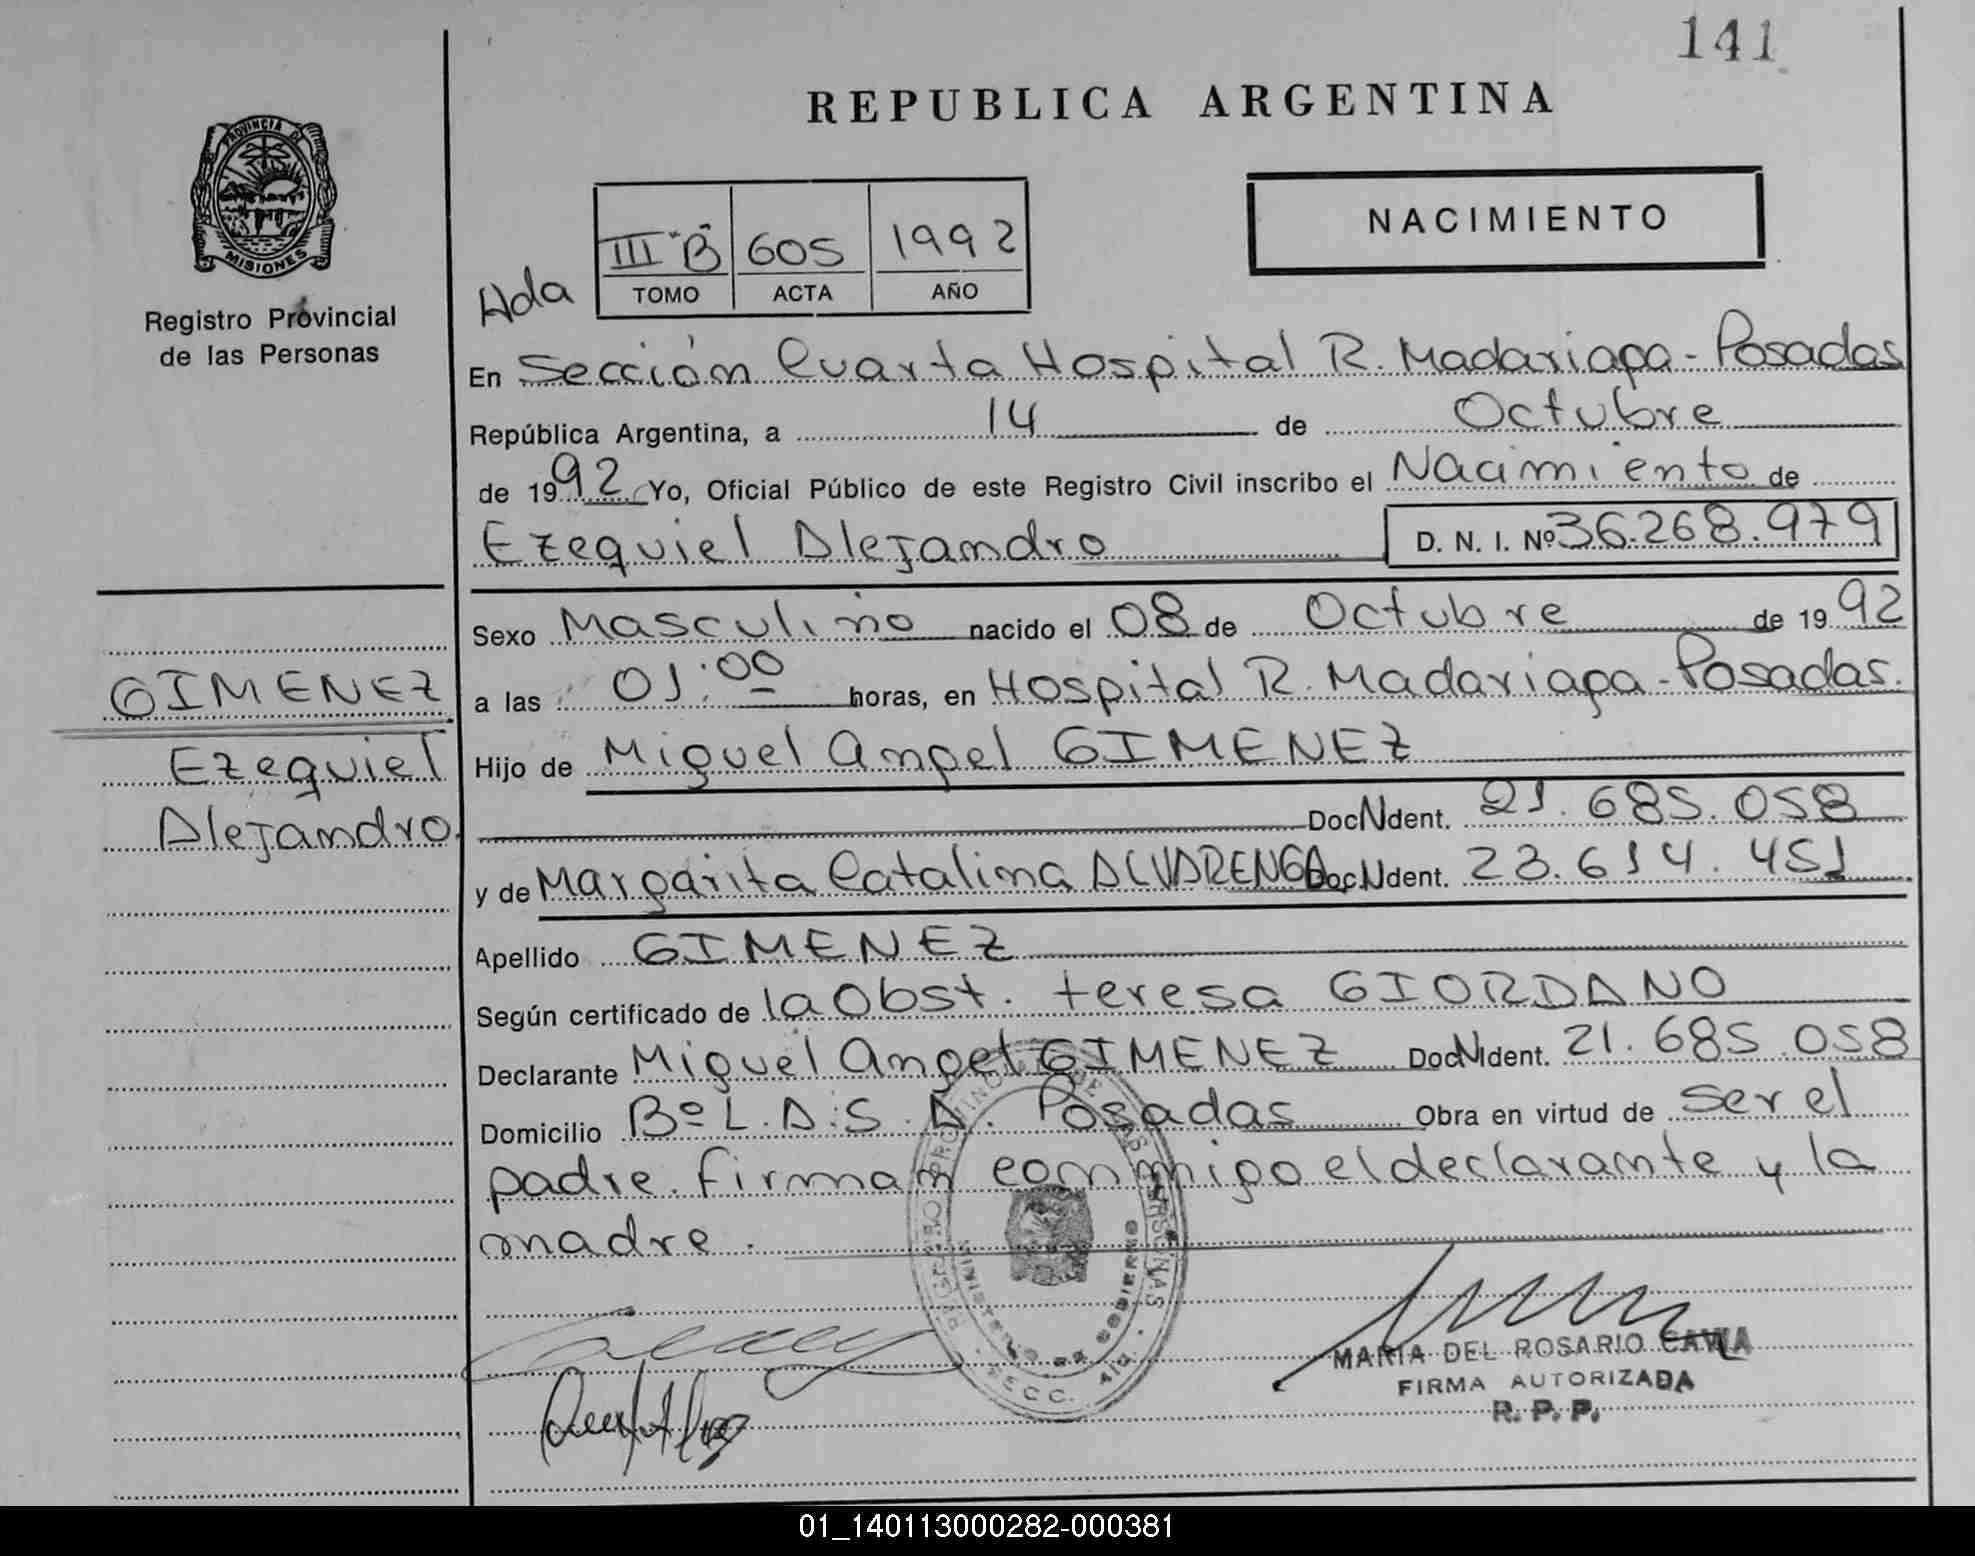 141
REPUBLICA ARGENTINA
PROVINCIA DE
MISIONES
Registro Provincial
de las Personas
NACIMIENTO
III "B" 605 1992
TOMO ACTA AÑO
Ada
En Sección Cuarta Hospital R. Madariaga - Posadas
República Argentina, a 14 de Octubre
de 1992 Yo, Oficial Público de este Registro Civil inscribo el Nacimiento de
Ezequiel Alejandro D. N. I. Nº 36.268.979
Sexo Masculino nacido el 08 de Octubre de 1992
a las 01:00 horas, en Hospital R. Madariaga - Posadas.
Hijo de Miguel Angel GIMENEZ
Doc N Ident. 21.685.058
y de Margarita Catalina ALVARENGA Doc N Ident. 23.614.451
Apellido GIMENEZ
Según certificado de la Obst. teresa GIORDANO
Declarante Miguel Angel GIMENEZ Doc N Ident. 21.685.058
Domicilio Bº L.A.S.A. Posadas Obra en virtud de ser el
padre. firman conmigo el declarante y la
madre.
GIMENEZ
Ezequiel
Alejandro
MARIA DEL ROSARIO
FIRMA AUTORIZADA
R. P. P.
01_140113000282-000381